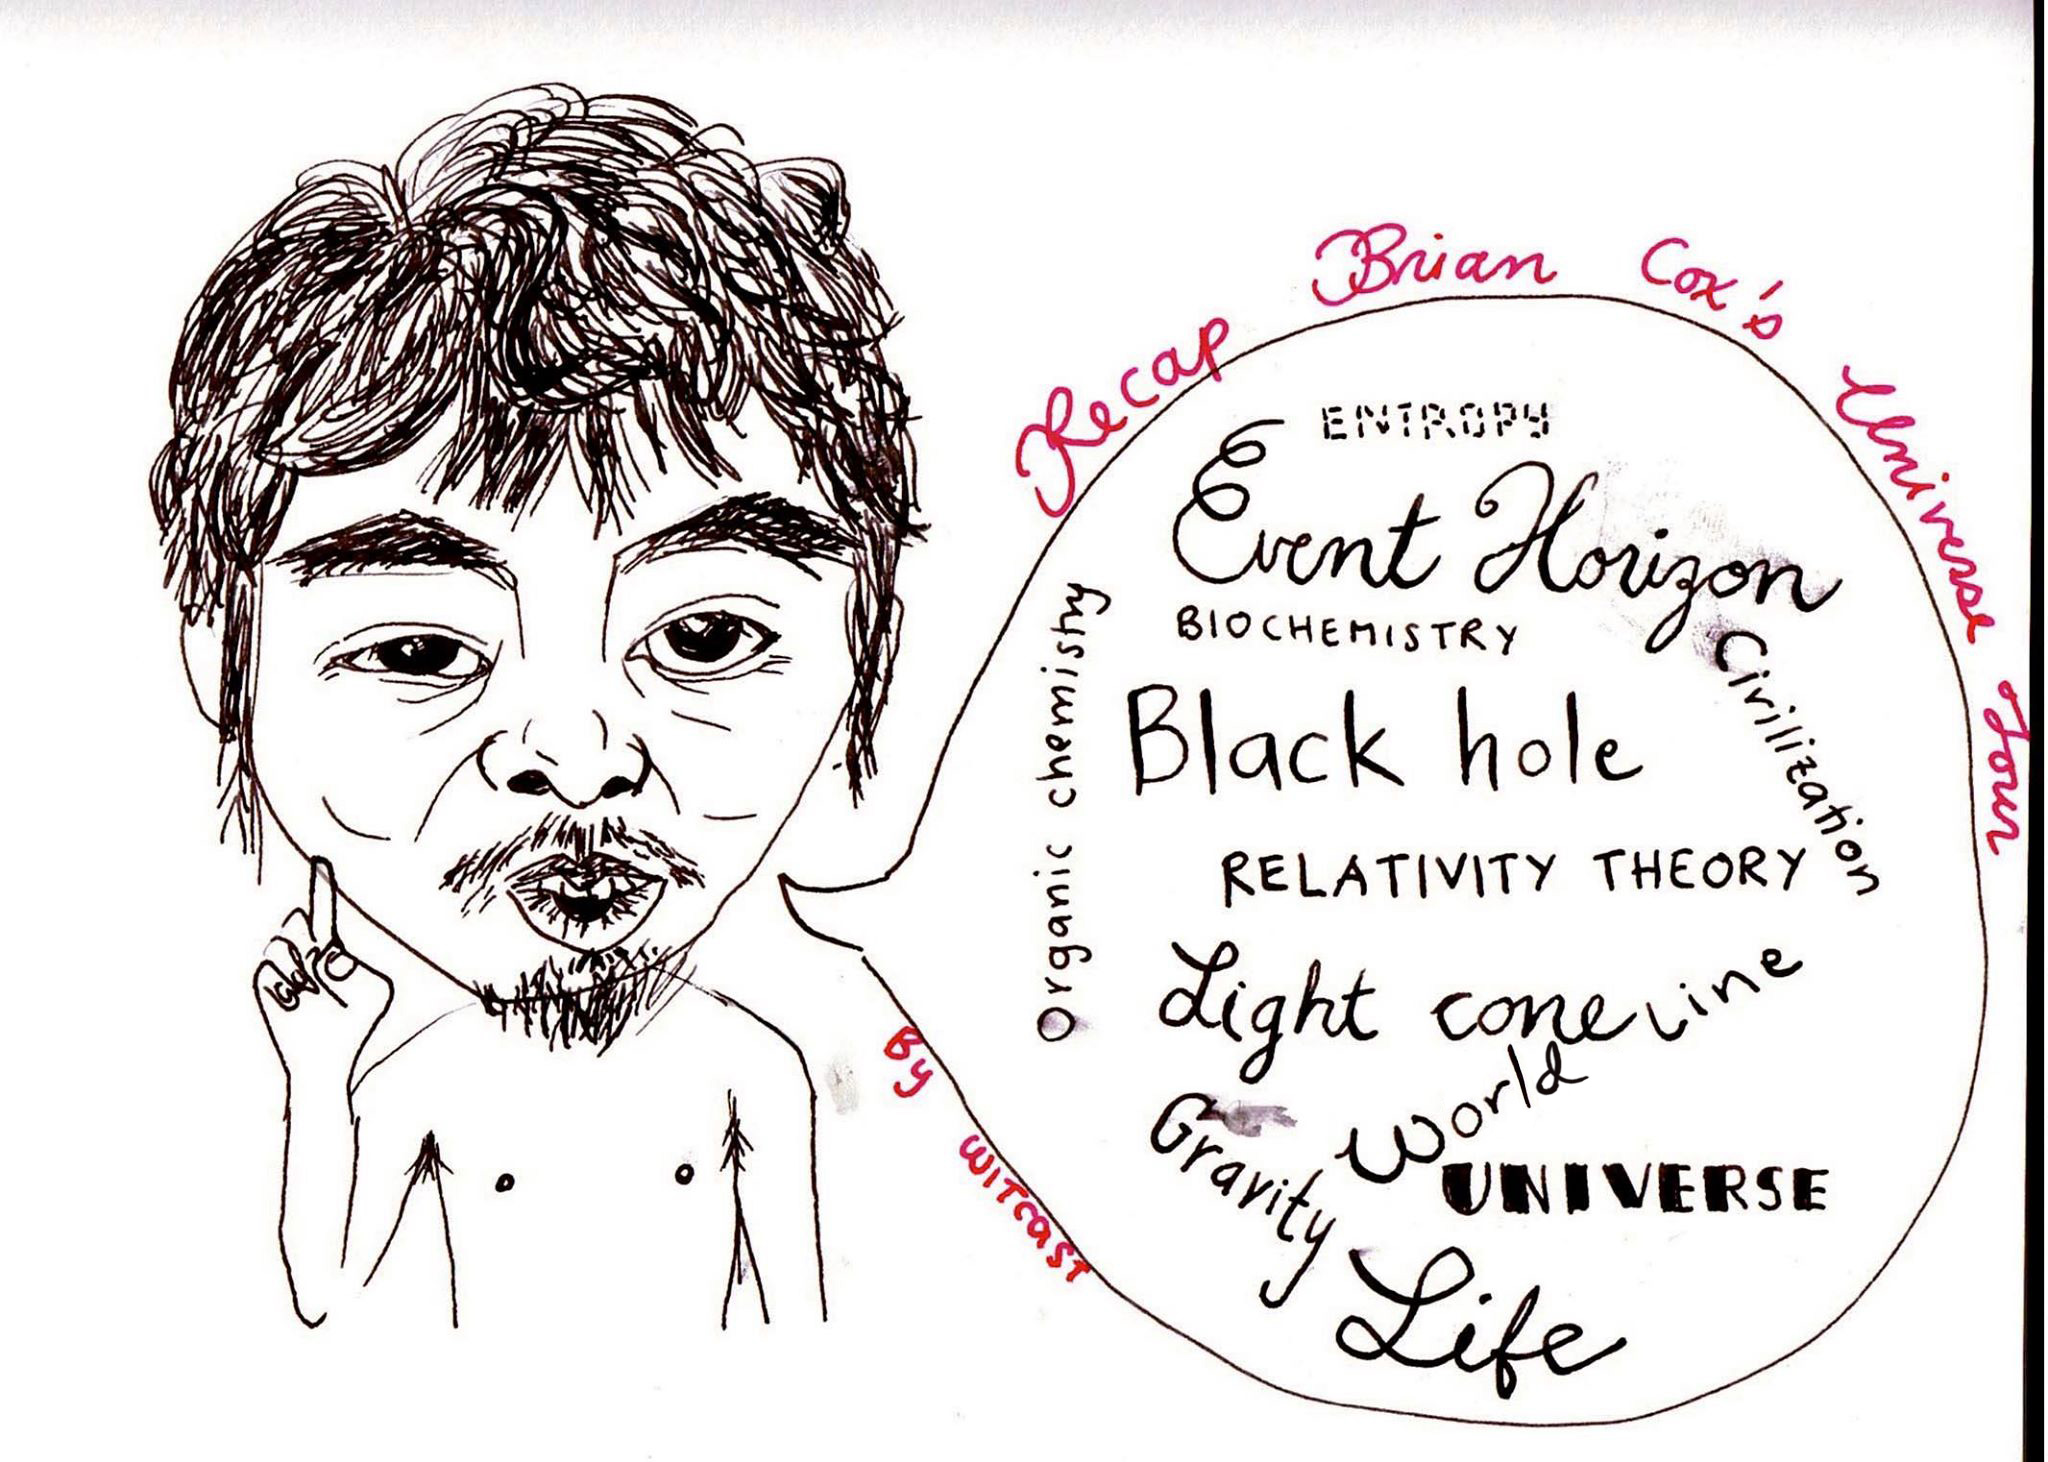 Recap Brian Cox's Universe Tour
ENTROPY
Event Horizon
BIOCHEMISTRY
Civilization
organic chemistry
Black hole
RELATIVITY THEORY
Light cone
World Line
Gravity
UNIVERSE
Life
By WiTcasT